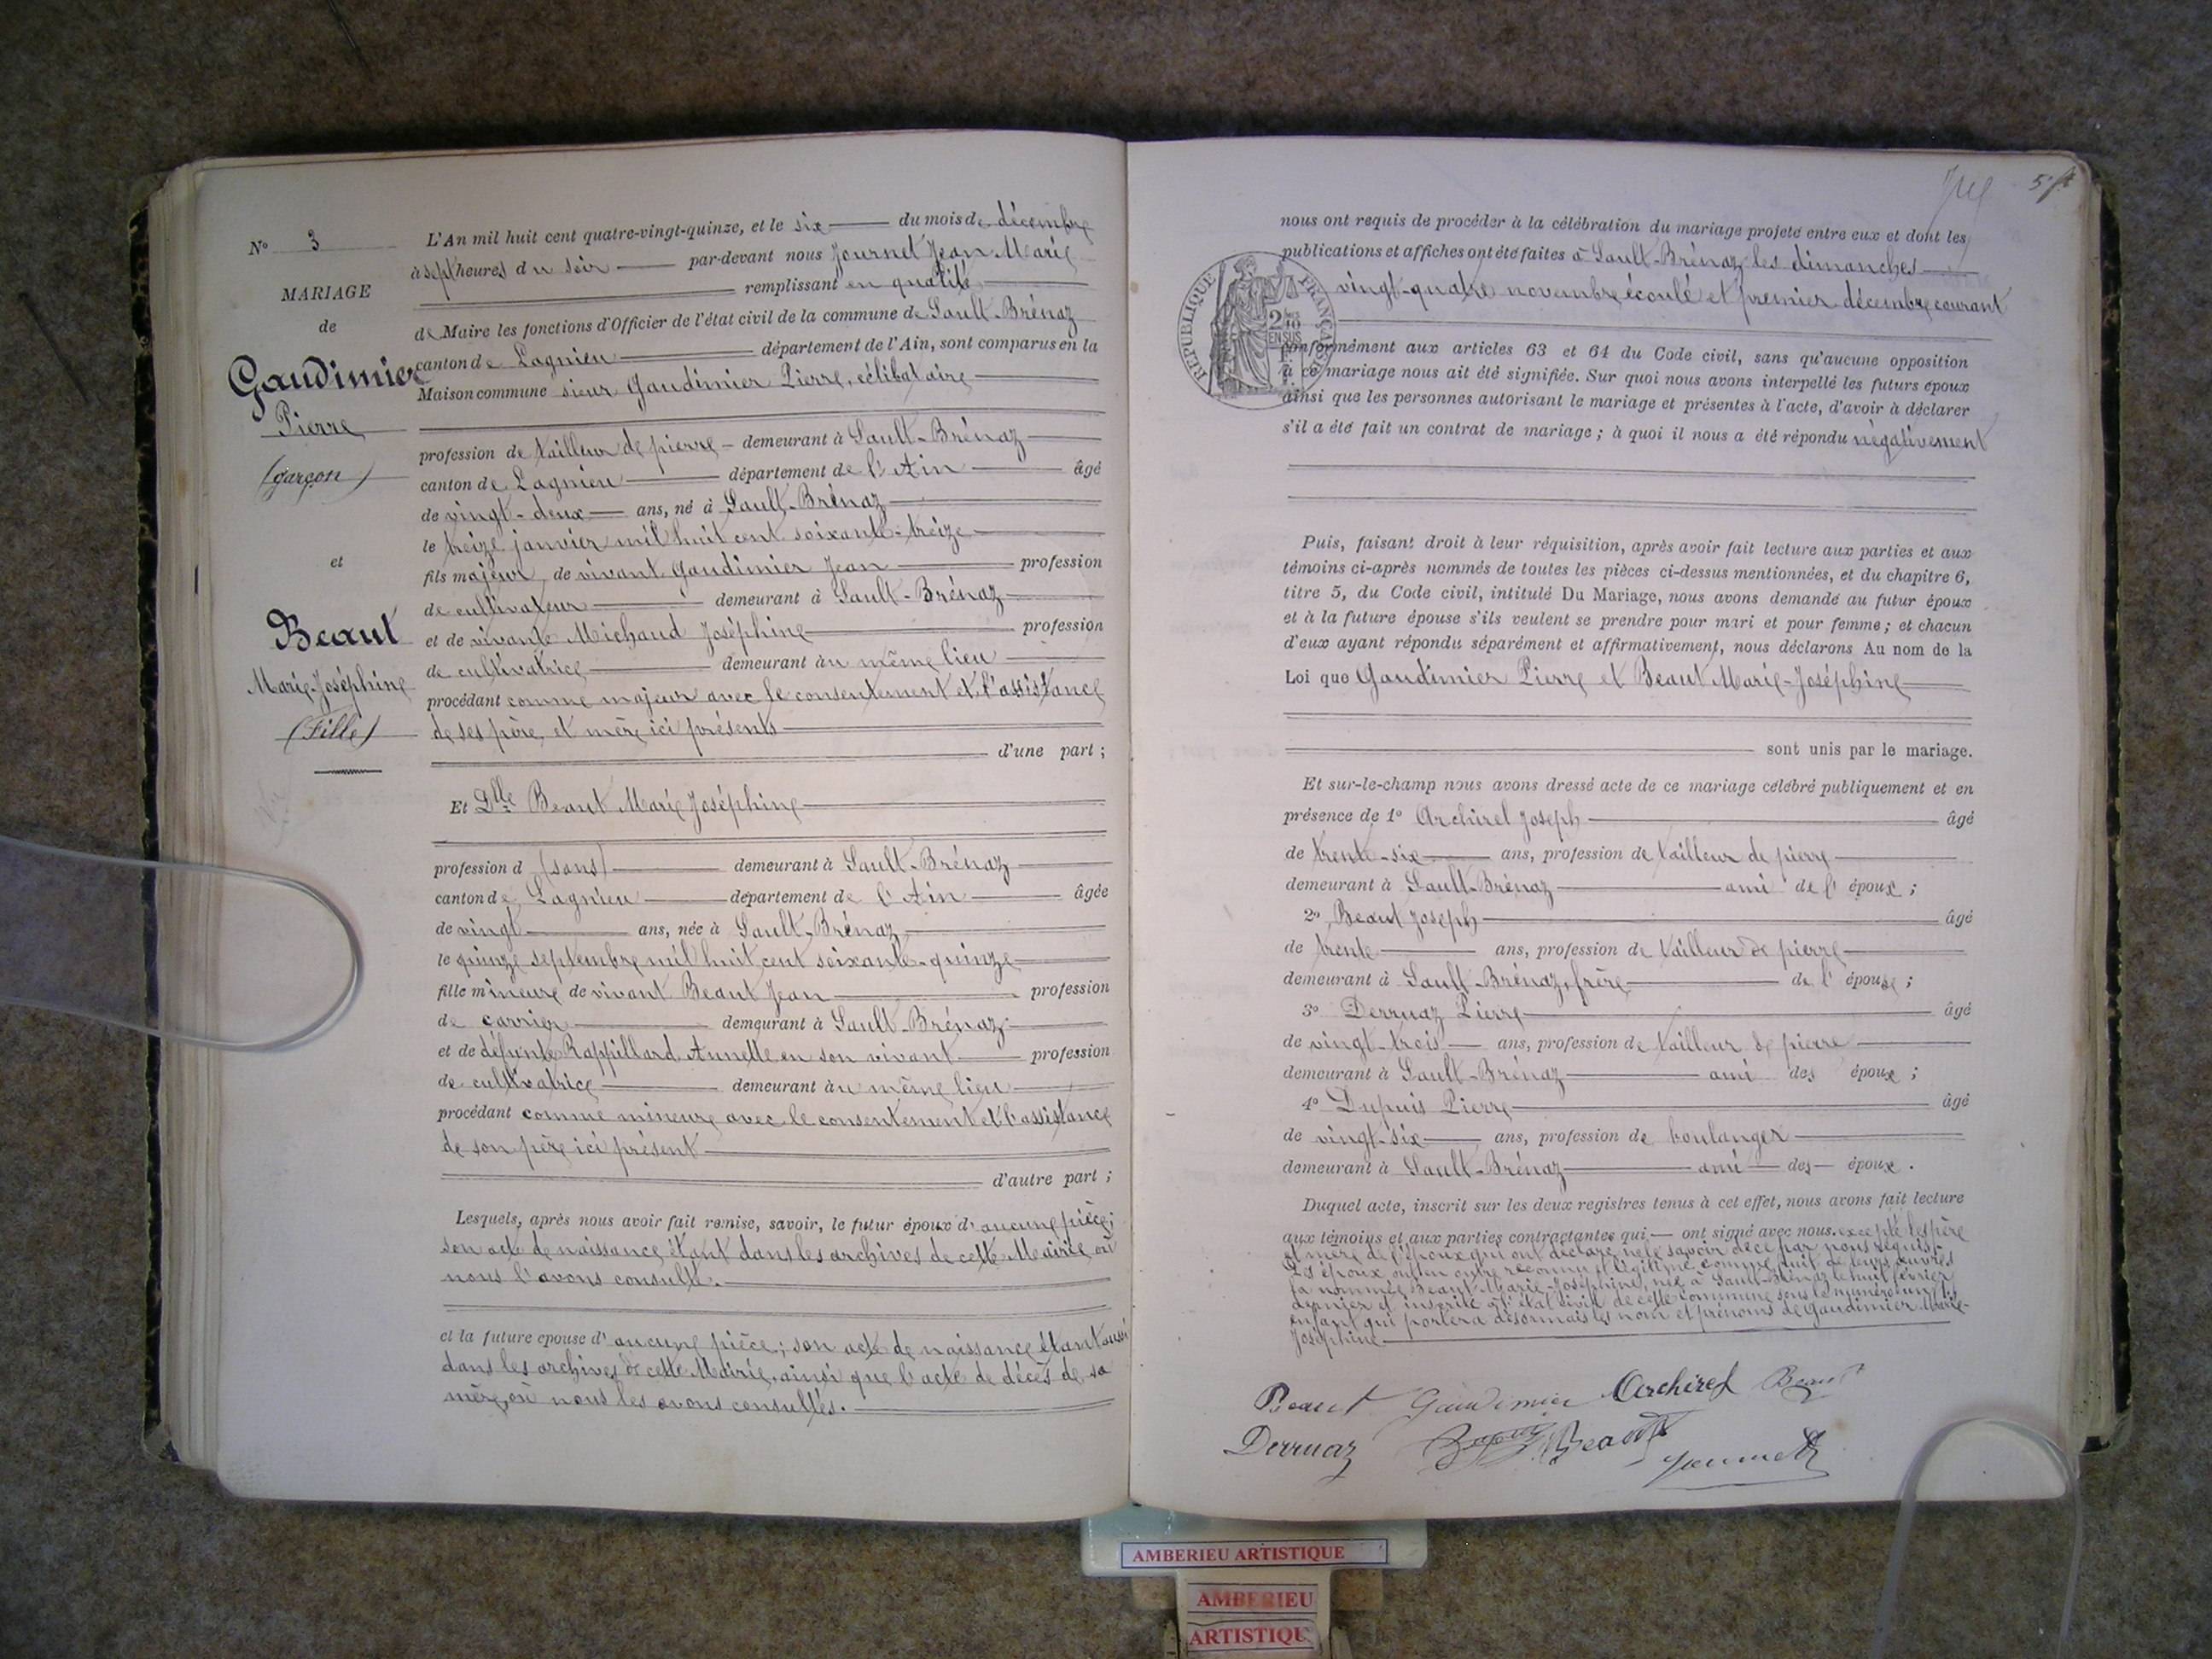 N° 3
MARIAGE
de
Gaudimier
Pierre
(garçon)
et
Beaut
Marie-Joséphine
(Fille)
L'An mil huit cent quatre-vingt-quinze, et le six du mois de décembre
à sept heures du soir par-devant nous Journet Jean Marie
remplissant en qualité
de Maire les fonctions d'Officier de l'état civil de la commune de Sault-Brénaz
canton de Lagnieu département de l'Ain, sont comparus en la
Maison commune sieur Gaudimier Pierre, célibataire
profession de tailleur de pierre demeurant à Sault-Brénaz
canton de Lagnieu département de l'Ain âgé
de vingt-deux ans, né à Sault-Brénaz
le treize janvier mil huit cent soixante-treize
fils majeur, de vivant Gaudimier Jean profession
de cultivateur demeurant à Sault-Brénaz
et de vivante Michaud Joséphine profession
de cultivatrice demeurant àu même lieu
procédant comme majeur avec le consentement et l'assistance
de ses père et mère ici présents
d'une part ;
Et Dlle Beaut Marie Joséphine
profession d (sans) demeurant à Sault-Brénaz
canton de Lagnieu département de l'Ain âgée
de vingt ans, née à Sault-Brénaz
le quinze septembre mil huit cent soixante-quinze
fille mineure de vivant Beaut Jean profession
de carrier demeurant à Sault-Brénaz
et de défunte Rappillard Annette en son vivant profession
de cultivatrice demeurant àu même lieu
procédant comme mineure avec le consentement et l'assistance
de son père ici présent
d'autre part ;
Lesquels, après nous avoir fait remise, savoir, le futur époux d'aucune pièce;
son acte de naissance étant dans les archives de cette Mairie où
nous l'avons consulté.
et la future epouse d'aucune pièce; son acte de naissance étant aussi
dans les archives de cette Mairie, ainsi que l'acte de décès de sa
mère, où nous les avons consultés.
57
nous ont requis de procéder à la célébration du mariage projeté entre eux et dont les
publications et affiches ont été faites à Sault-Brénaz, les dimanches
vingt-quatre novembre écoulé et premier décembre courant
RÉPUBLIQUE FRANÇAISE
2/10 EN SUS
conformément aux articles 63 et 64 du Code civil, sans qu'aucune opposition
à ce mariage nous ait été signifiée. Sur quoi nous avons interpellé les futurs époux
ainsi que les personnes autorisant le mariage et présentes à l'acte, d'avoir à déclarer
s'il a été fait un contrat de mariage ; à quoi il nous a été répondu négativement
Puis, faisant droit à leur réquisition, après avoir fait lecture aux parties et aux
témoins ci-après nommés de toutes les pièces ci-dessus mentionnées, et du chapitre 6,
titre 5, du Code civil, intitulé Du Mariage, nous avons demandé au futur époux
et à la future épouse s'ils veulent se prendre pour mari et pour femme ; et chacun
d'eux ayant répondu séparément et affirmativement, nous déclarons Au nom de la
Loi que Gaudimier Pierre et Beaut Marie-Joséphine
sont unis par le mariage.
Et sur-le-champ nous avons dressé acte de ce mariage célébré publiquement et en
présence de 1° Archirel Joseph âgé
de trente-six ans, profession de tailleur de pierre
demeurant à Sault-Brénaz ami de l'époux ;
2° Beaut Joseph âgé
de trente ans, profession de tailleur de pierre
demeurant à Sault-Brénaz, frère de l'épouse ;
3° Derruaz Pierre âgé
de vingt-trois ans, profession de tailleur de pierre
demeurant à Sault-Brénaz ami des époux ;
4° Dupuis Pierre âgé
de vingt-six ans, profession de boulanger
demeurant à Sault-Brénaz ami des époux .
Duquel acte, inscrit sur les deux registres tenus à cet effet, nous avons fait lecture
aux témoins et aux parties contractantes qui ont signé avec nous. excepté les père
et mère de l'époux qui ont déclaré ne le savoir de ce par nous requis.
Les époux ont en outre reconnu et légitimé comme fruit de leurs œuvres
la nommée Beaut Marie-Joséphine, née à Sault-Brénaz le huit février
dernier et inscrite à l'état civil de cette commune sous le numéro
enfant qui portera désormais les nom et prénoms de Gaudimier Marie-
Joséphine
Beaut Gaudimier Archirel Beaut
Derruaz Beaut Journet
AMBERIEU ARTISTIQUE
AMBERIEU
ARTISTIQUE